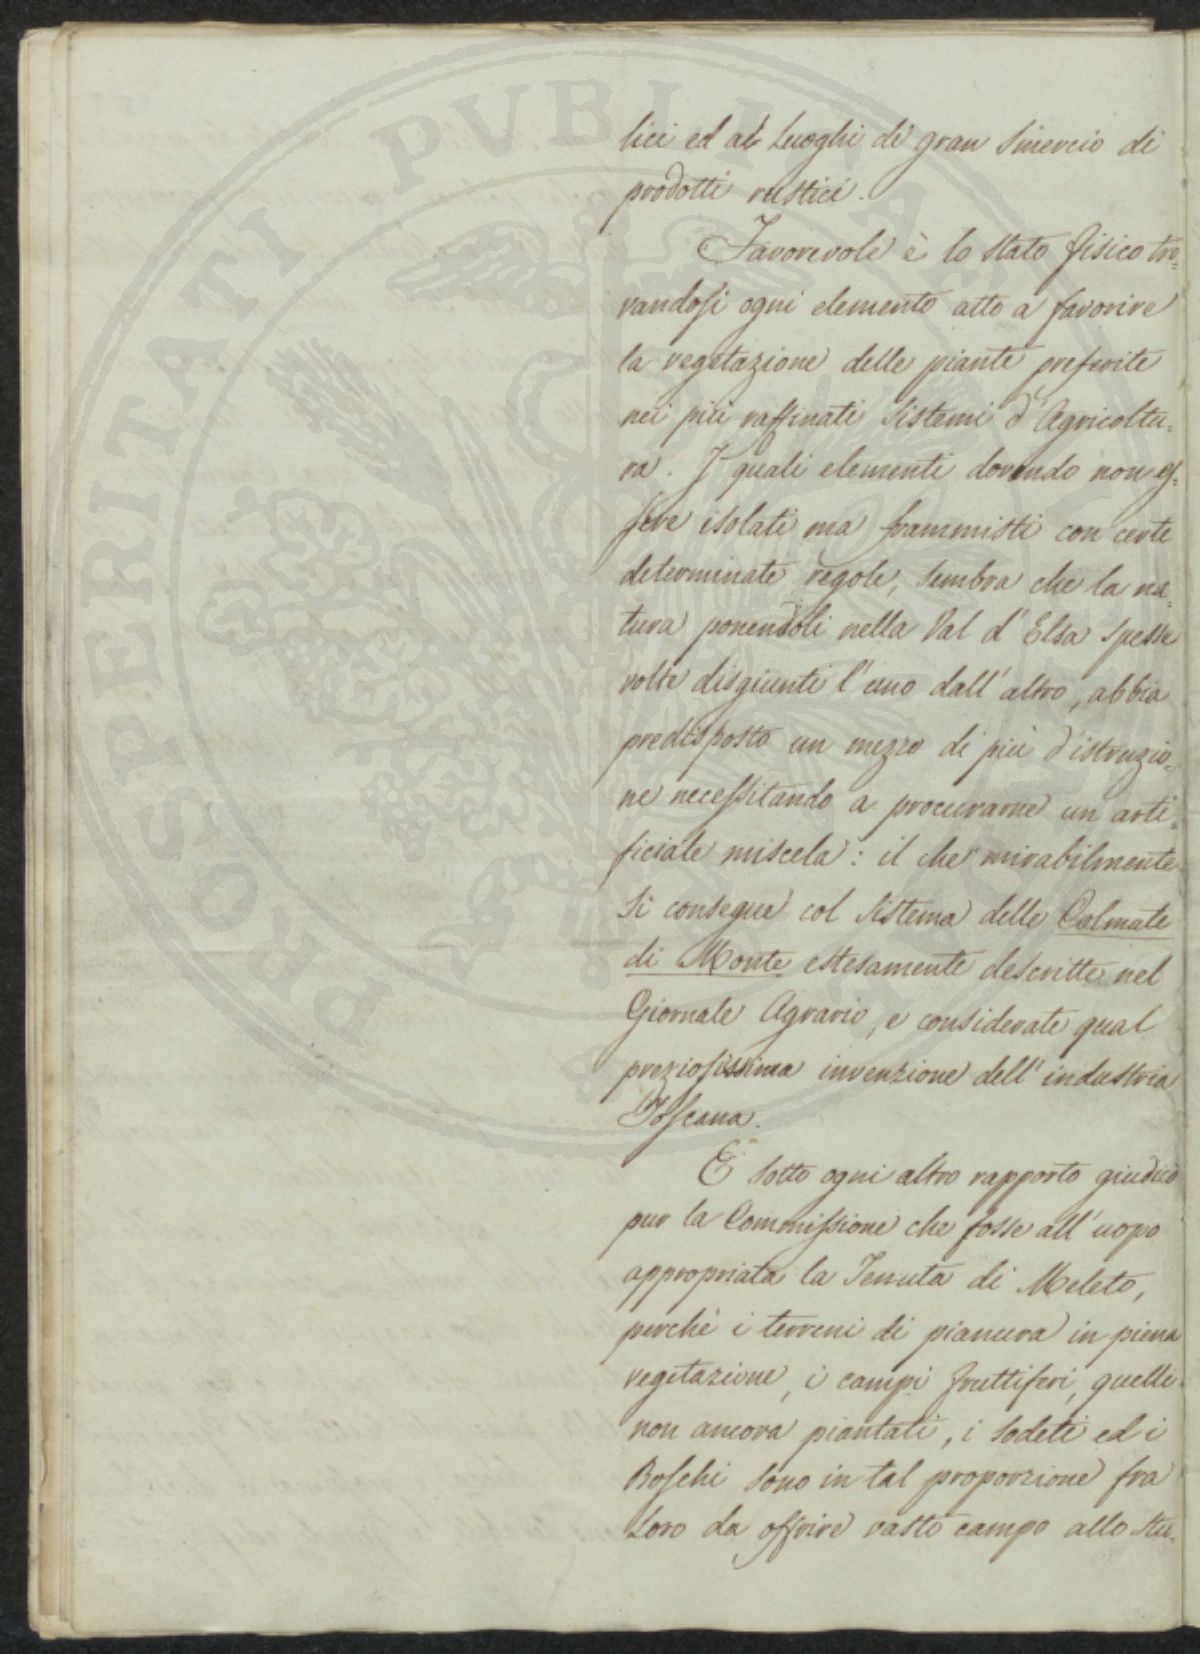 lici ed ai Luoghi di gran smercio di
prodotti rustici.
Favorevole è lo stato fisico tro-
vandosi ogni elemento atto a favorire
la vegetazione delle piante preferite
nei più raffinati sistemi d'Agricoltu-
ra. I quali elementi dovendo non es-
sere isolati ma frammisti con certe
determinate regole, sembra che la na-
tura ponendoli nella Val d'Elsa spesse
volte disgiunti l'uno dall'altro, abbia
predisposto un mezzo di più d'istruzio-
ne necessitando a procurarne un arti-
ficiale miscela: il che mirabilmente
si consegue col sistema delle Colmate
di Monte estesamente descritte nel
Giornale Agrario, e considerate qual
preziosissima invenzione dell'industria
Toscana.
E sotto ogni altro rapporto giudicò
pur la Commissione che fosse all'uopo
appropriata la Tenuta di Meleto,
perchè i terreni di pianura in piena
vegetazione, i campi fruttiferi, quelli
non ancora piantati, i sodeti ed i
Boschi sono in tal proporzione fra
Loro da offrire vasto campo allo stu-
PROSPERITATI PVBLICAE